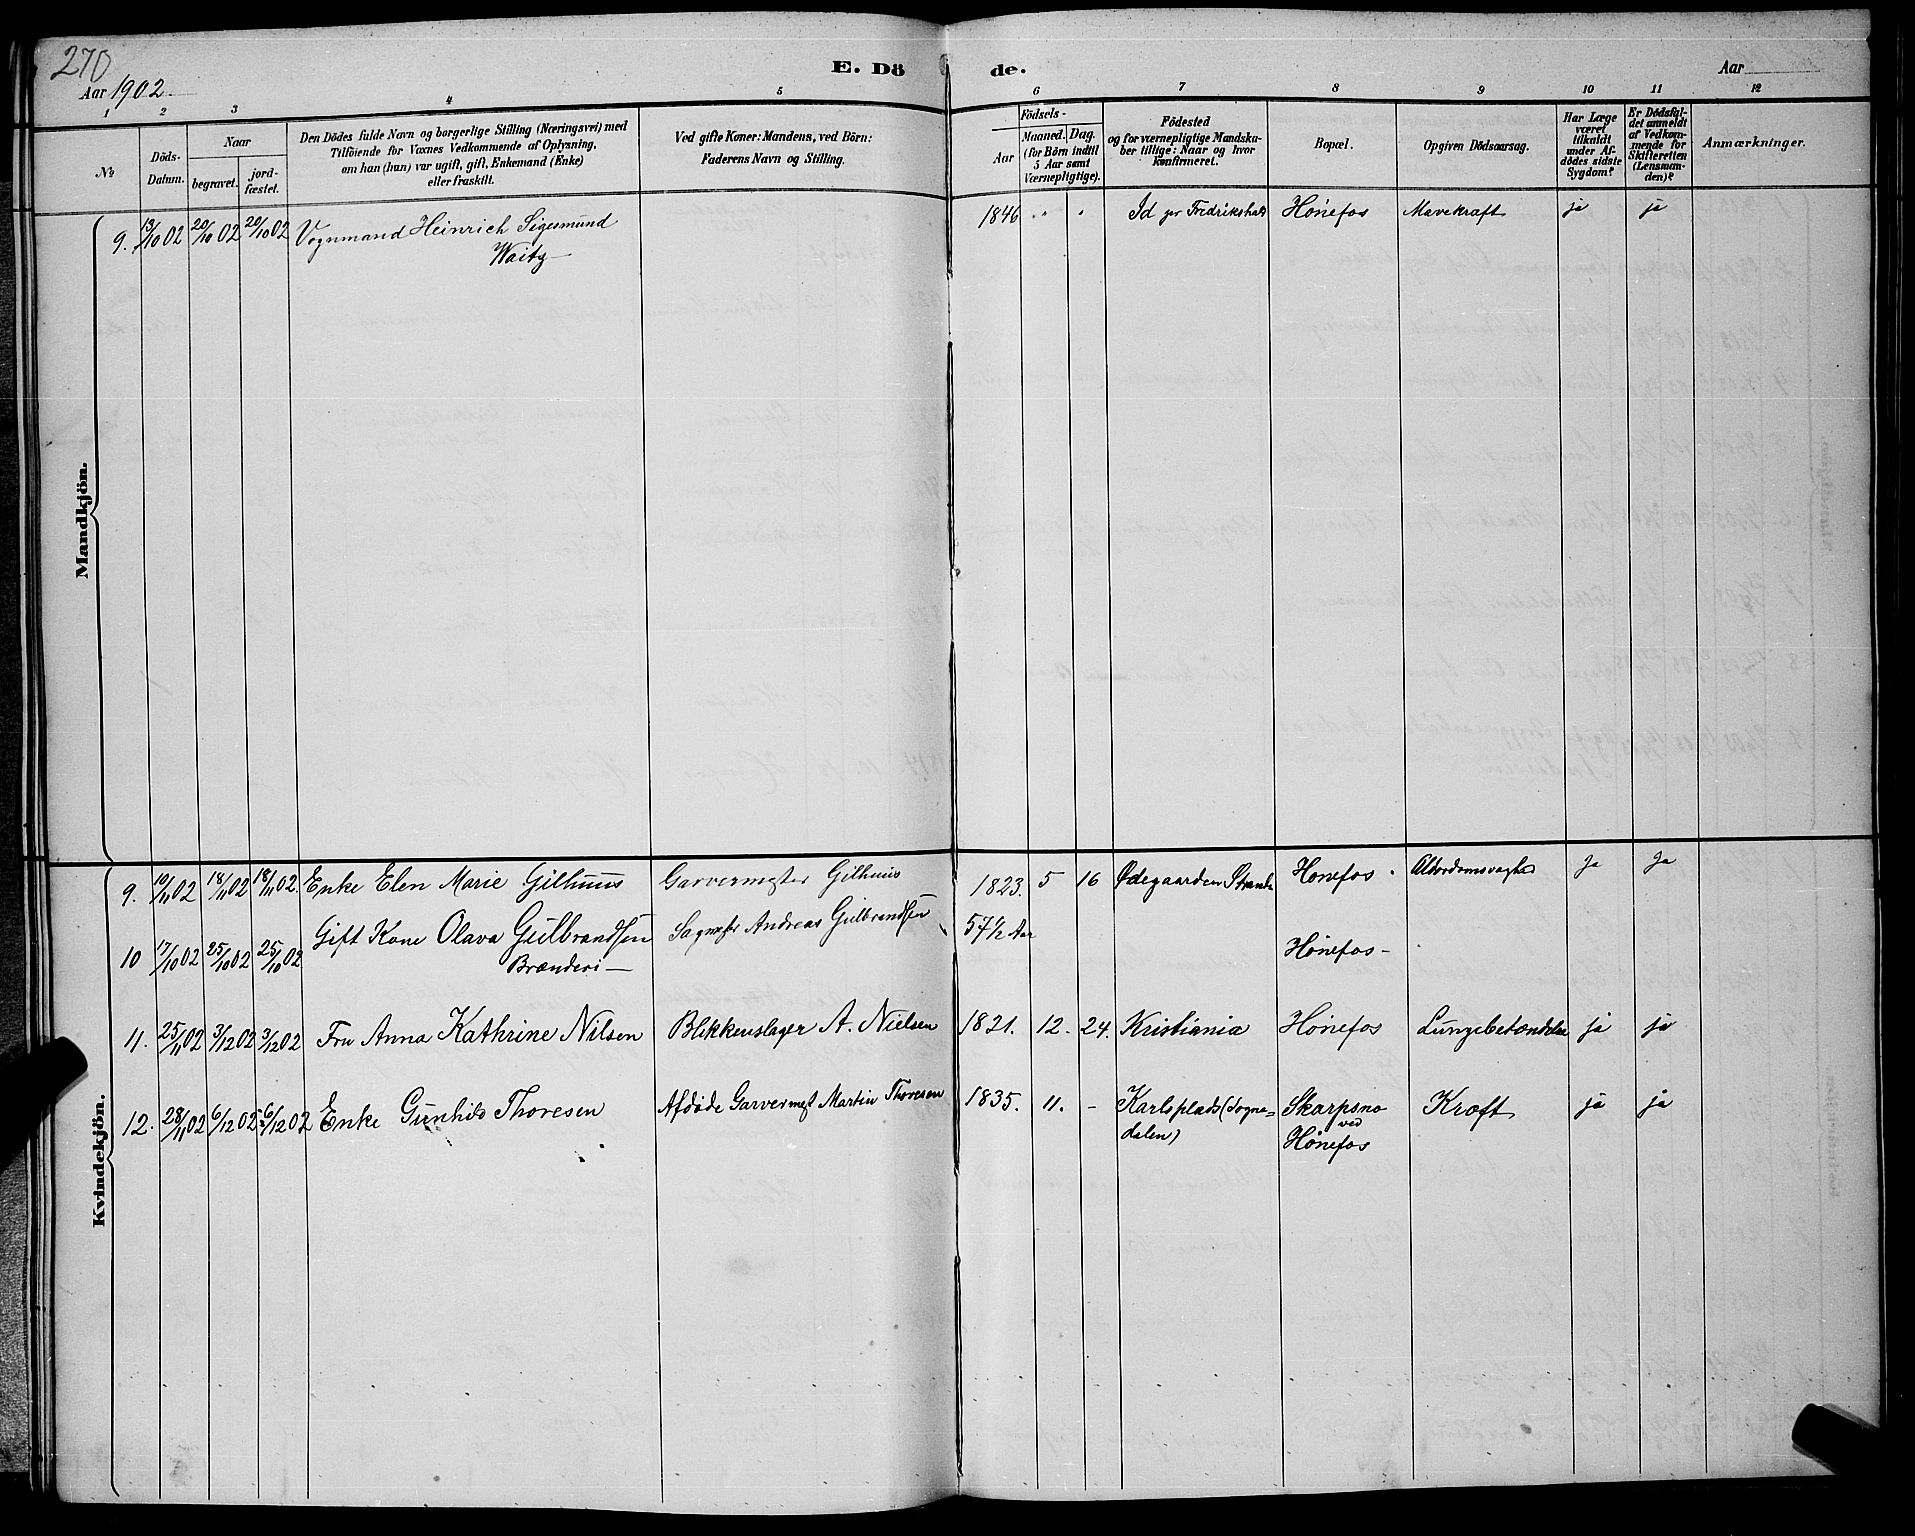 270
E. Dö de.
Aar 1902. Aar
1 2 3 4 5 6 7 8 9 10 11 12
№
Döds-
Datum.
Naar
begravet.
jord-
fæstet.
Den Dödes fulde Navn og borgerlige Stilling (Næringsvei) med
Tilföiende for Voxnes Vedkommende af Oplysning,
om han (hun) var ugift, gift, Enkemand (Enke)
eller fraskilt.
Ved gifte Koner: Mandens, ved Börn:
Faderens Navn og Stilling.
Födsels-
Aar
Maaned. Dag.
(for Börn indtil
5 Aar samt
Værnepligtige).
Födested
og for værnepligtige Mandska-
ber tillige: Naar og hvor
konfirmeret.
Bopæl.
Opgiven Dödsaarsag.
Har Læge
været
tilkaldt
under Af-
dödes sidste
Sygdom?
Er Dödsfal-
det anmeldt
af Vedkom-
mende for
Skifteretten
(Lensman-
den)?
Anmærkninger.
Mandkjön.
9. 13/10 02 20/10 02 20/10 02 Vognmand Heinrich Sigesmund
Waitz 1846 " " Id pr Fredrikshald Hönefos Mavekræft ja ja
Kvindekjön.
9. 10/11 02 18/11 02 18/11 02. Enke Elen Marie Gilhuus Garvermester Gilhuus 1823. 5 16 Ødegaarden Strande Hønefos. Alderdomsvaghed Ja Ja
10 17/10 02 25/10 02 25/10 02 Gift Kone Olava Gulbrandsen
Brænderi Andreas Gulbrandsen 57½ Aar Hönefos
11. 25/11 02 3/12 02 3/12 02 Fru Anna Kathrine Nilsen Blikkenslager A. Nielsen 1821. 12. 24. Kristiania Hönefos Lungebetændelse ja ja
12. 28/11 02 6/12 02 6/12 02 Enke Gunhild Thoresen Afdöde Garvermest Martin Thoresen 1835. 11. - Karlsplads (Sogne-
dalen) Skarpsno
ved
Hönefos Kræft ja ja